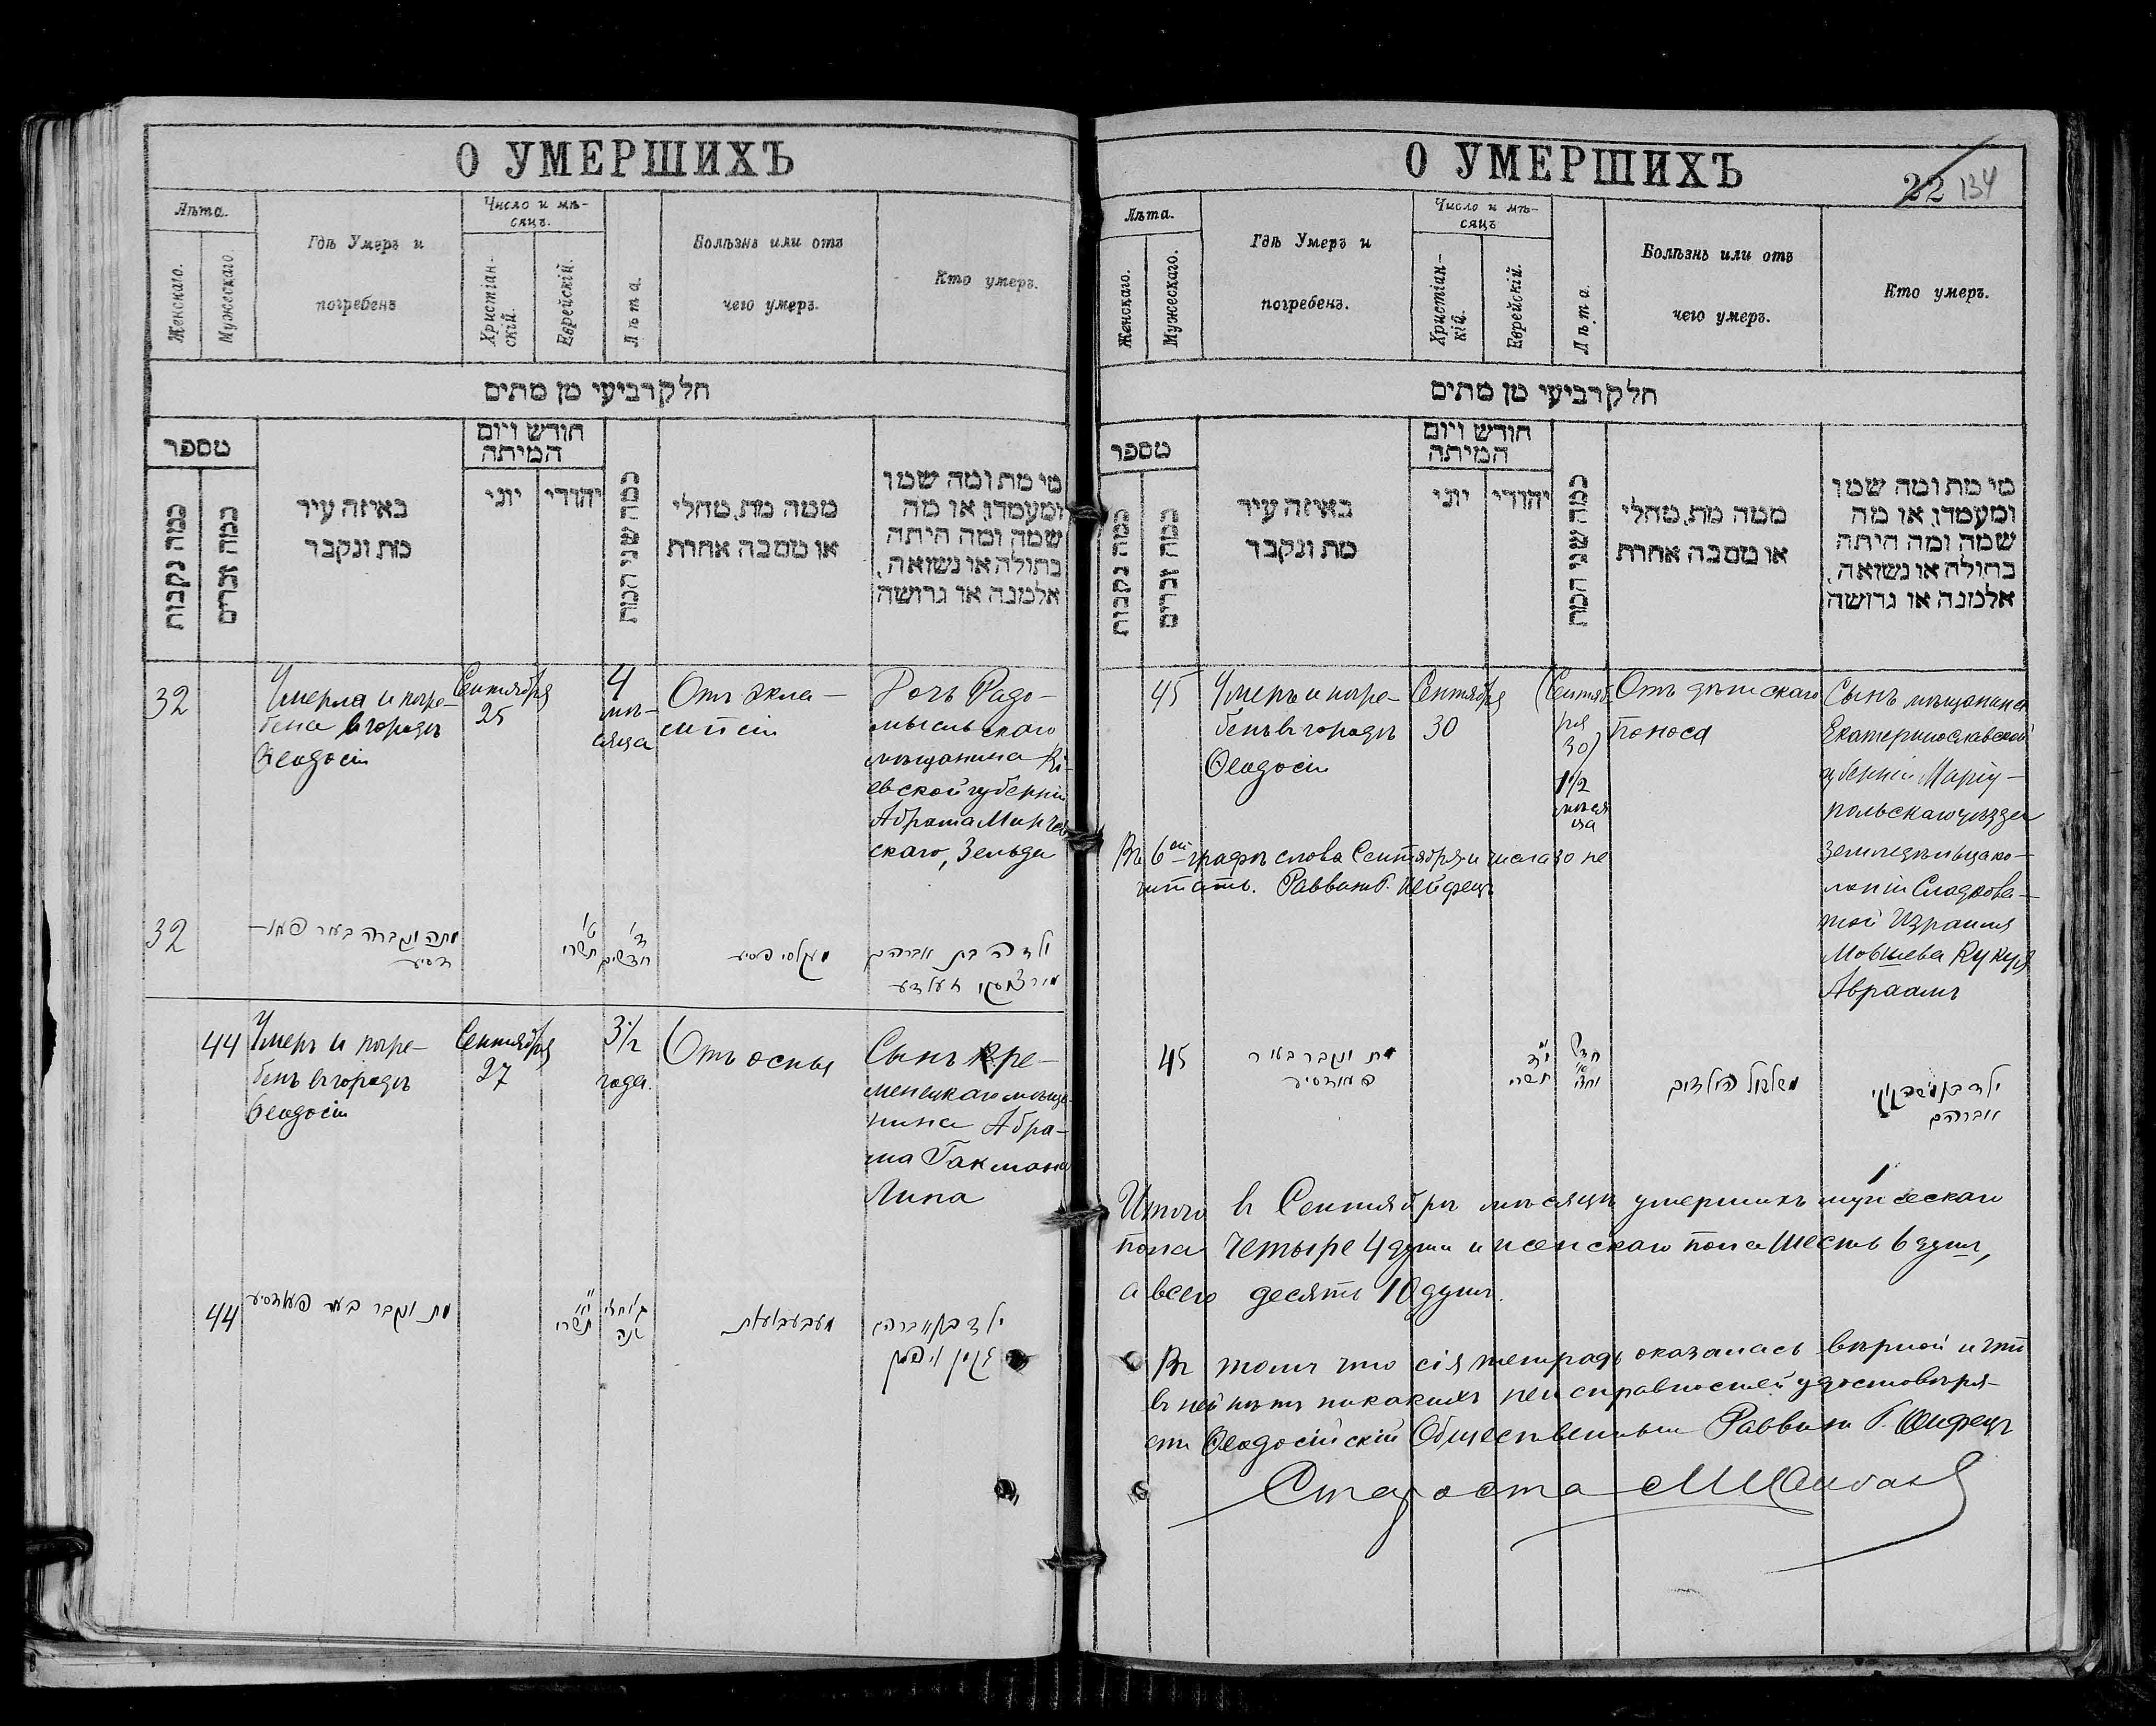 О УМЕРШИХЪ
Лѣта.
Женскаго.
Мужескаго
Гдѣ Умеръ и
погребенъ
Число и мѣ-
сяцъ.
Христіан-
скій.
Еврейскій.
Лѣта.
Болѣзнь или отъ
чего умеръ.
Кто умеръ.
חלק רביעי מן מתים
מספר
כמה נקבות
כמה זכרים
באיזה עיר
מת ונקבר
חודש ויום
המיתה
יוני
יהודי
כמה שני המת
ממה מת, מחלי
או מסבה אחרת
מי מת ומה שמו
ומעמדו, או מה
שמה ומה היתה
בתולה או נשואה,
אלמנה או גרושה
32
Умерла и погре-
бена въ городѣ
Ѳеодосіи
Сентября
25
4
мѣ-
сяца
Отъ экла-
мпсіи
Дочь Радо-
мысльскаго
мѣщанина Кі-
евской губерніи
Абрама
скаго, Зельда
32
מתה ונקברה בעיר פעא-
דסיע
ט'
תשרי
ד'
חדשים
ילדה בת אברהם
זעלדע
44
Умеръ и погре-
бенъ въ городѣ
Ѳеодосіи
Сентября
27
3 1/2
года.
Отъ оспы
Сынъ Кре-
менецкаго мѣща-
нина Абра-
ма Гакмана
Липа
44
מת ונקבר בעיר פעאדסיע
י"א
תשרי
ג' וחצי
שנה
מאבעבועות
ילד בן אברהם
גקמן ליפא
О УМЕРШИХЪ
22 134
Лѣта.
Женскаго.
Мужескаго.
Гдѣ Умеръ и
погребенъ.
Число и мѣ-
сяцъ
Христіан-
кій.
Еврейскій.
Лѣта.
Болѣзнь или отъ
чего умеръ.
Кто умеръ.
חלק רביעי מן מתים
מספר
כמה נקבות
כמה זכרים
באיזה עיר
מת ונקבר
חודש ויום
המיתה
יוני
יהודי
כמה שני המת
ממה מת, מחלי
או מסבה אחרת
מי מת ומה שמו
ומעמדו, או מה
שמה ומה היתה
בתולה או נשואה,
אלמנה או גרושה
45
Умеръ и погре-
бенъ въ городѣ
Ѳеодосіи
Сентября
30
(Сентяб
ря
30)
1 1/2
мѣся
ца
Отъ дѣтскаго
поноса
Сынъ мѣщанина
Екатеринославской
губерніи Маріу-
польскаго уѣзда
земледѣльца ко-
лоніи Сладково-
ной Израиля
Мовшева Кукуя
Авраамъ
Въ 6ой графѣ слова Сентября и числа 30 не
читать. Раввинъ
45
מת ונקבר בעיר
פעאדסיע
י"ד
תשרי
חדש
וחצי
משלשול הילדים
אברהם
Итого въ Сентябрѣ мѣсяцѣ умершихъ мужескаго
пола четыре 4 души и женскаго пола шесть 6 душъ,
а всего десять 10 душъ.
Въ томъ что сія тетрадь оказалась вѣрной и что
въ ней нѣтъ никакихъ неисправностей удостовѣря-
етъ Ѳеодосійскій Общественный Раввинъ
Староста